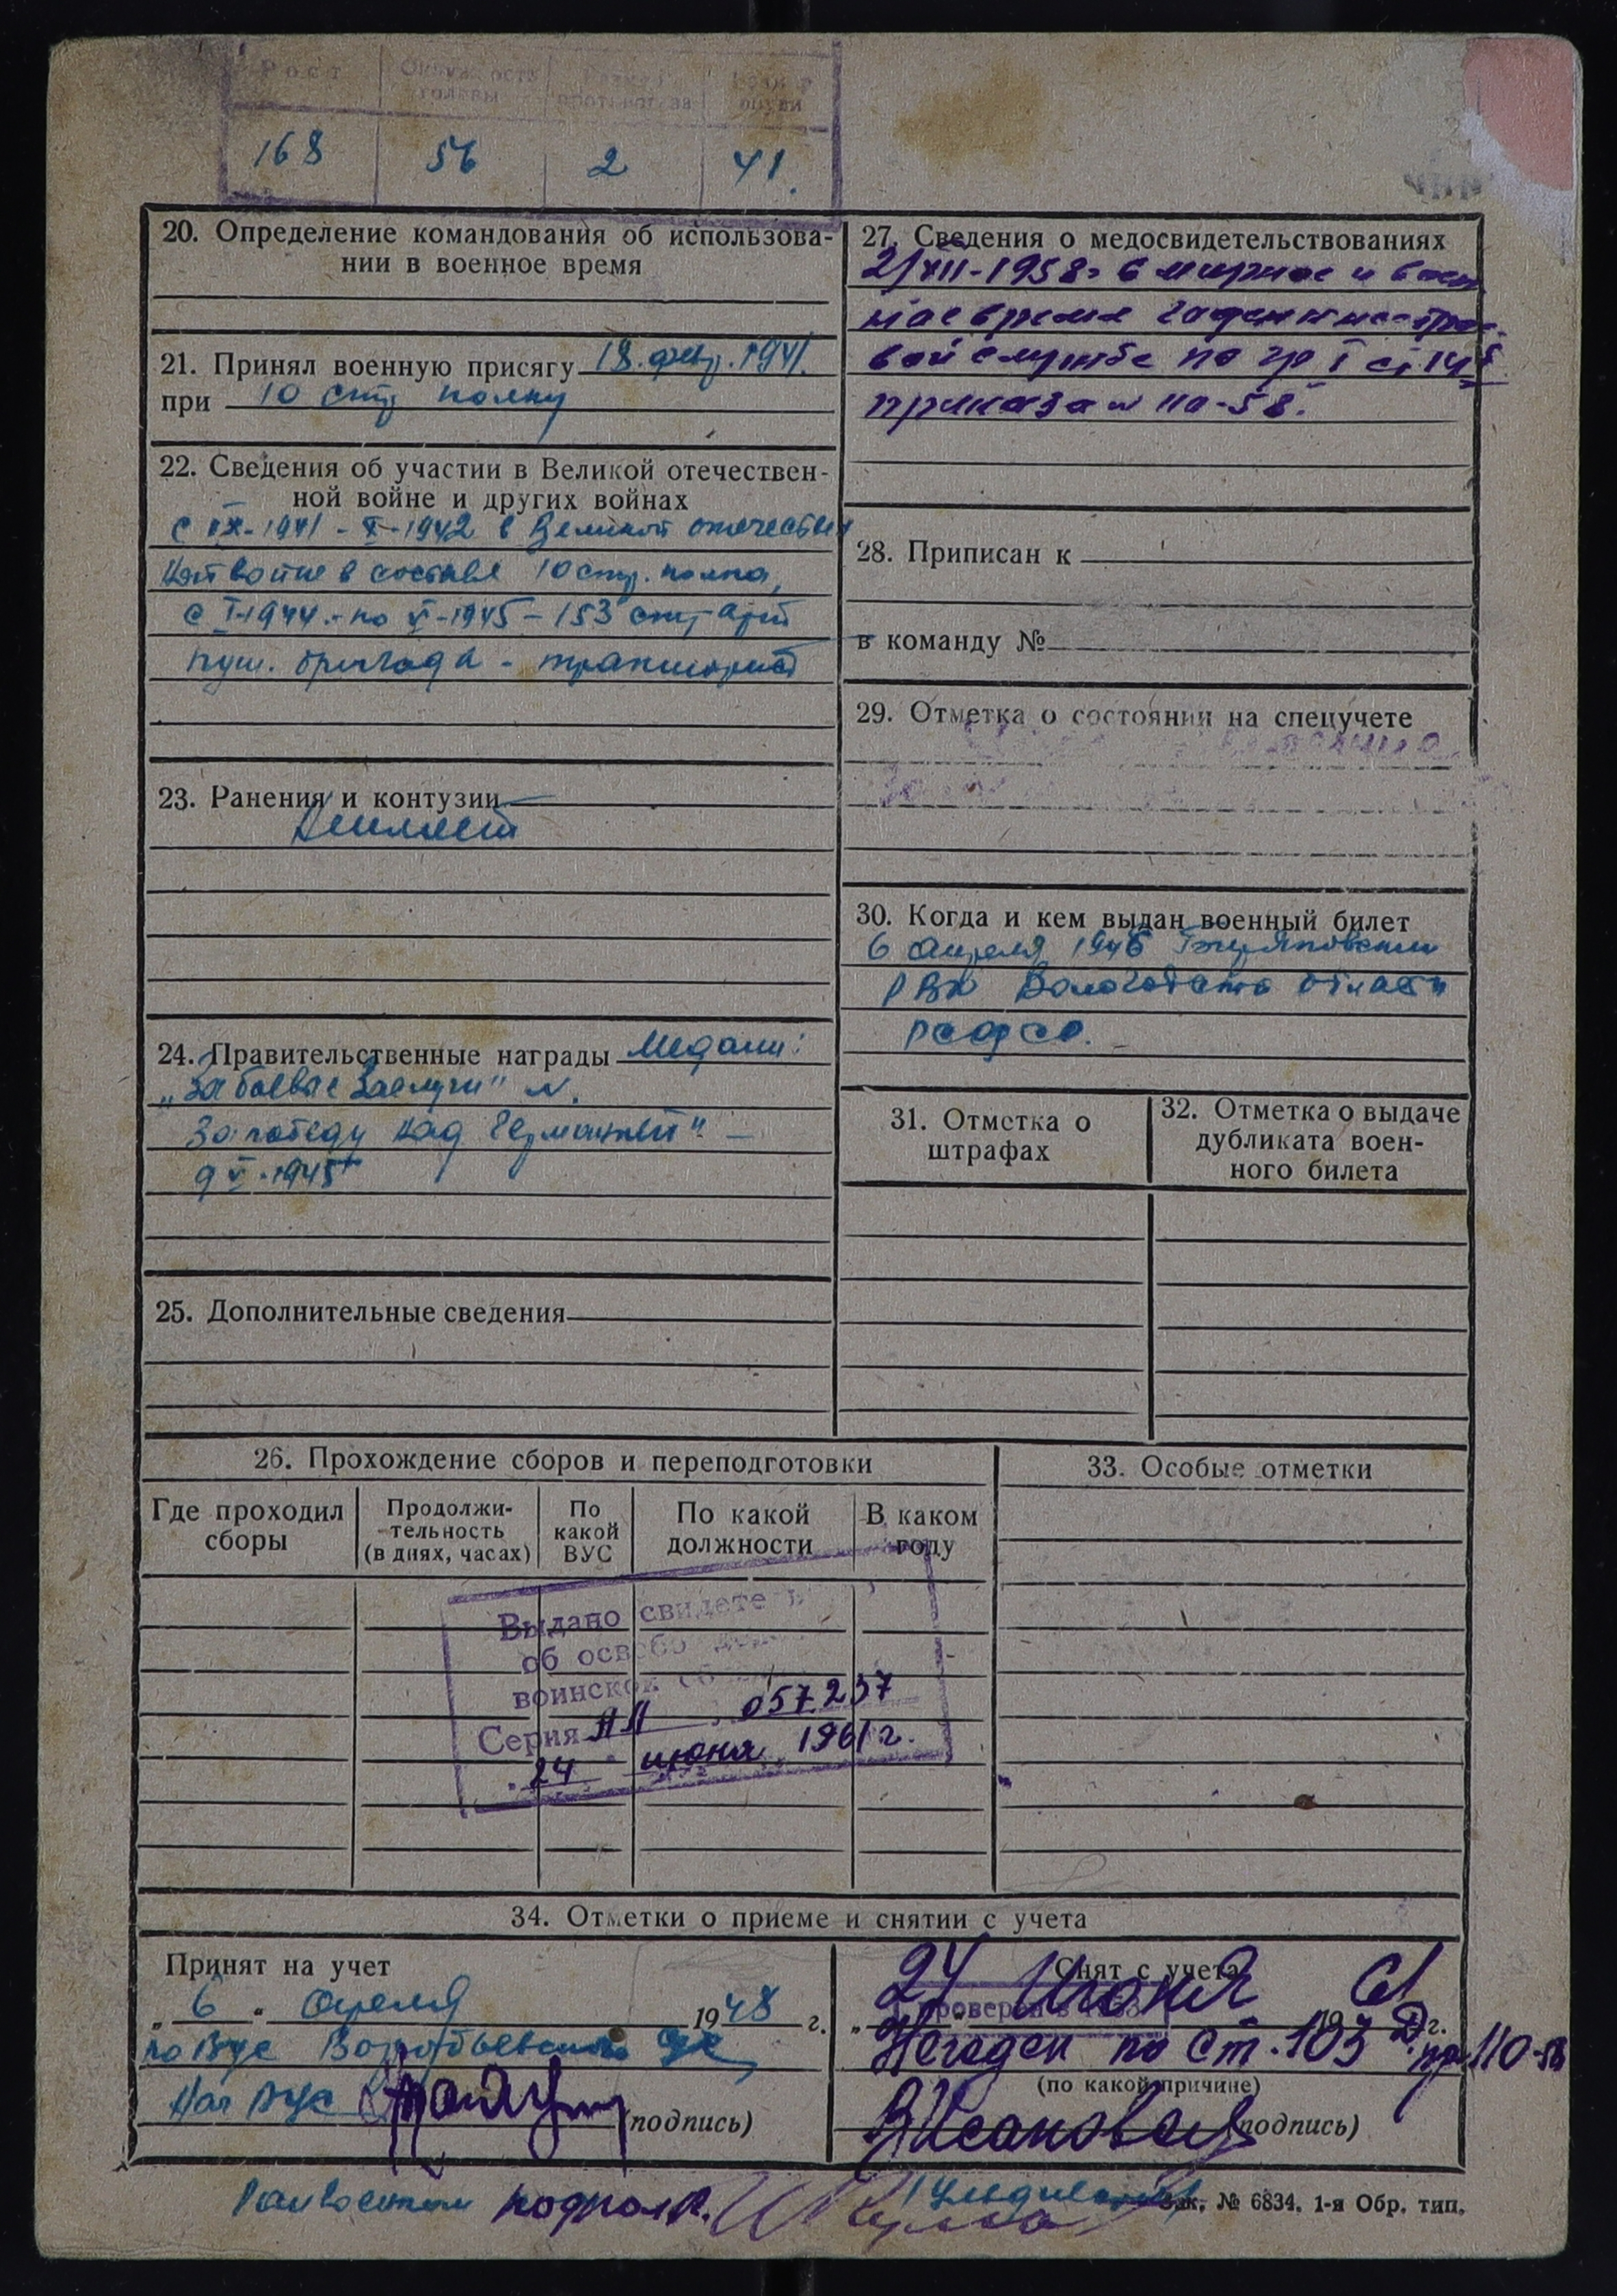 Рост Окружность головы Размер противогаза Размер обуви
168 56 2 41.
20. Определение командования об использова-
нии в военное время
21. Принял военную присягу 18. февр. 1941.
при 10 стр полку
22. Сведения об участии в Великой отечествен-
ной войне и других войнах
с IX-1941 - X-1942 в Великой отечествен
ной войне в составе 10 стр. полка,
с I-1944.- по V-1945 - 153 арт
пуш. бригада -
23. Ранения и контузии
24. Правительственные награды Медали:
„За боевые заслуги" и.
За победу над Германией" —
9 V-1945
25. Дополнительные сведения
26. Прохождение сборов и переподготовки
Где проходил сборы
Продолжи-
тельность
(в днях, часах)
По какой ВУС
По какой должности
В каком году
Выдано свидете
об освобо
воинской
Серия АЛ 057237
„24 " июня 1961 г.
27. Сведения о медосвидетельствованиях
2/XII-1958г в мирное и воен
ное время годен к нестрое-
вой службе по гр I ст. 14
приказа 110-58.
28. Приписан к
в команду №
29. Отметка о состоянии на спецучете
30. Когда и кем выдан военный билет
6 апреля
РВК Вологодской области
РСФСР.
31. Отметка о
штрафах
32. Отметка о выдаче
дубликата воен-
ного билета
33. Особые отметки
34. Отметки о приеме и снятии с учета
Принят на учет
„ 6 " апреля 1948 г.
Воробьевского
Нач ВУС
(подпись)
Снят с учета
24 июня 19 61 г.
Проверен в 1953
Негоден по ст. 103 Д пр 110-58
(по какой причине)
(подпись)
Райвоенком подполк.
Зак. № 6834. 1-я Обр. тип.